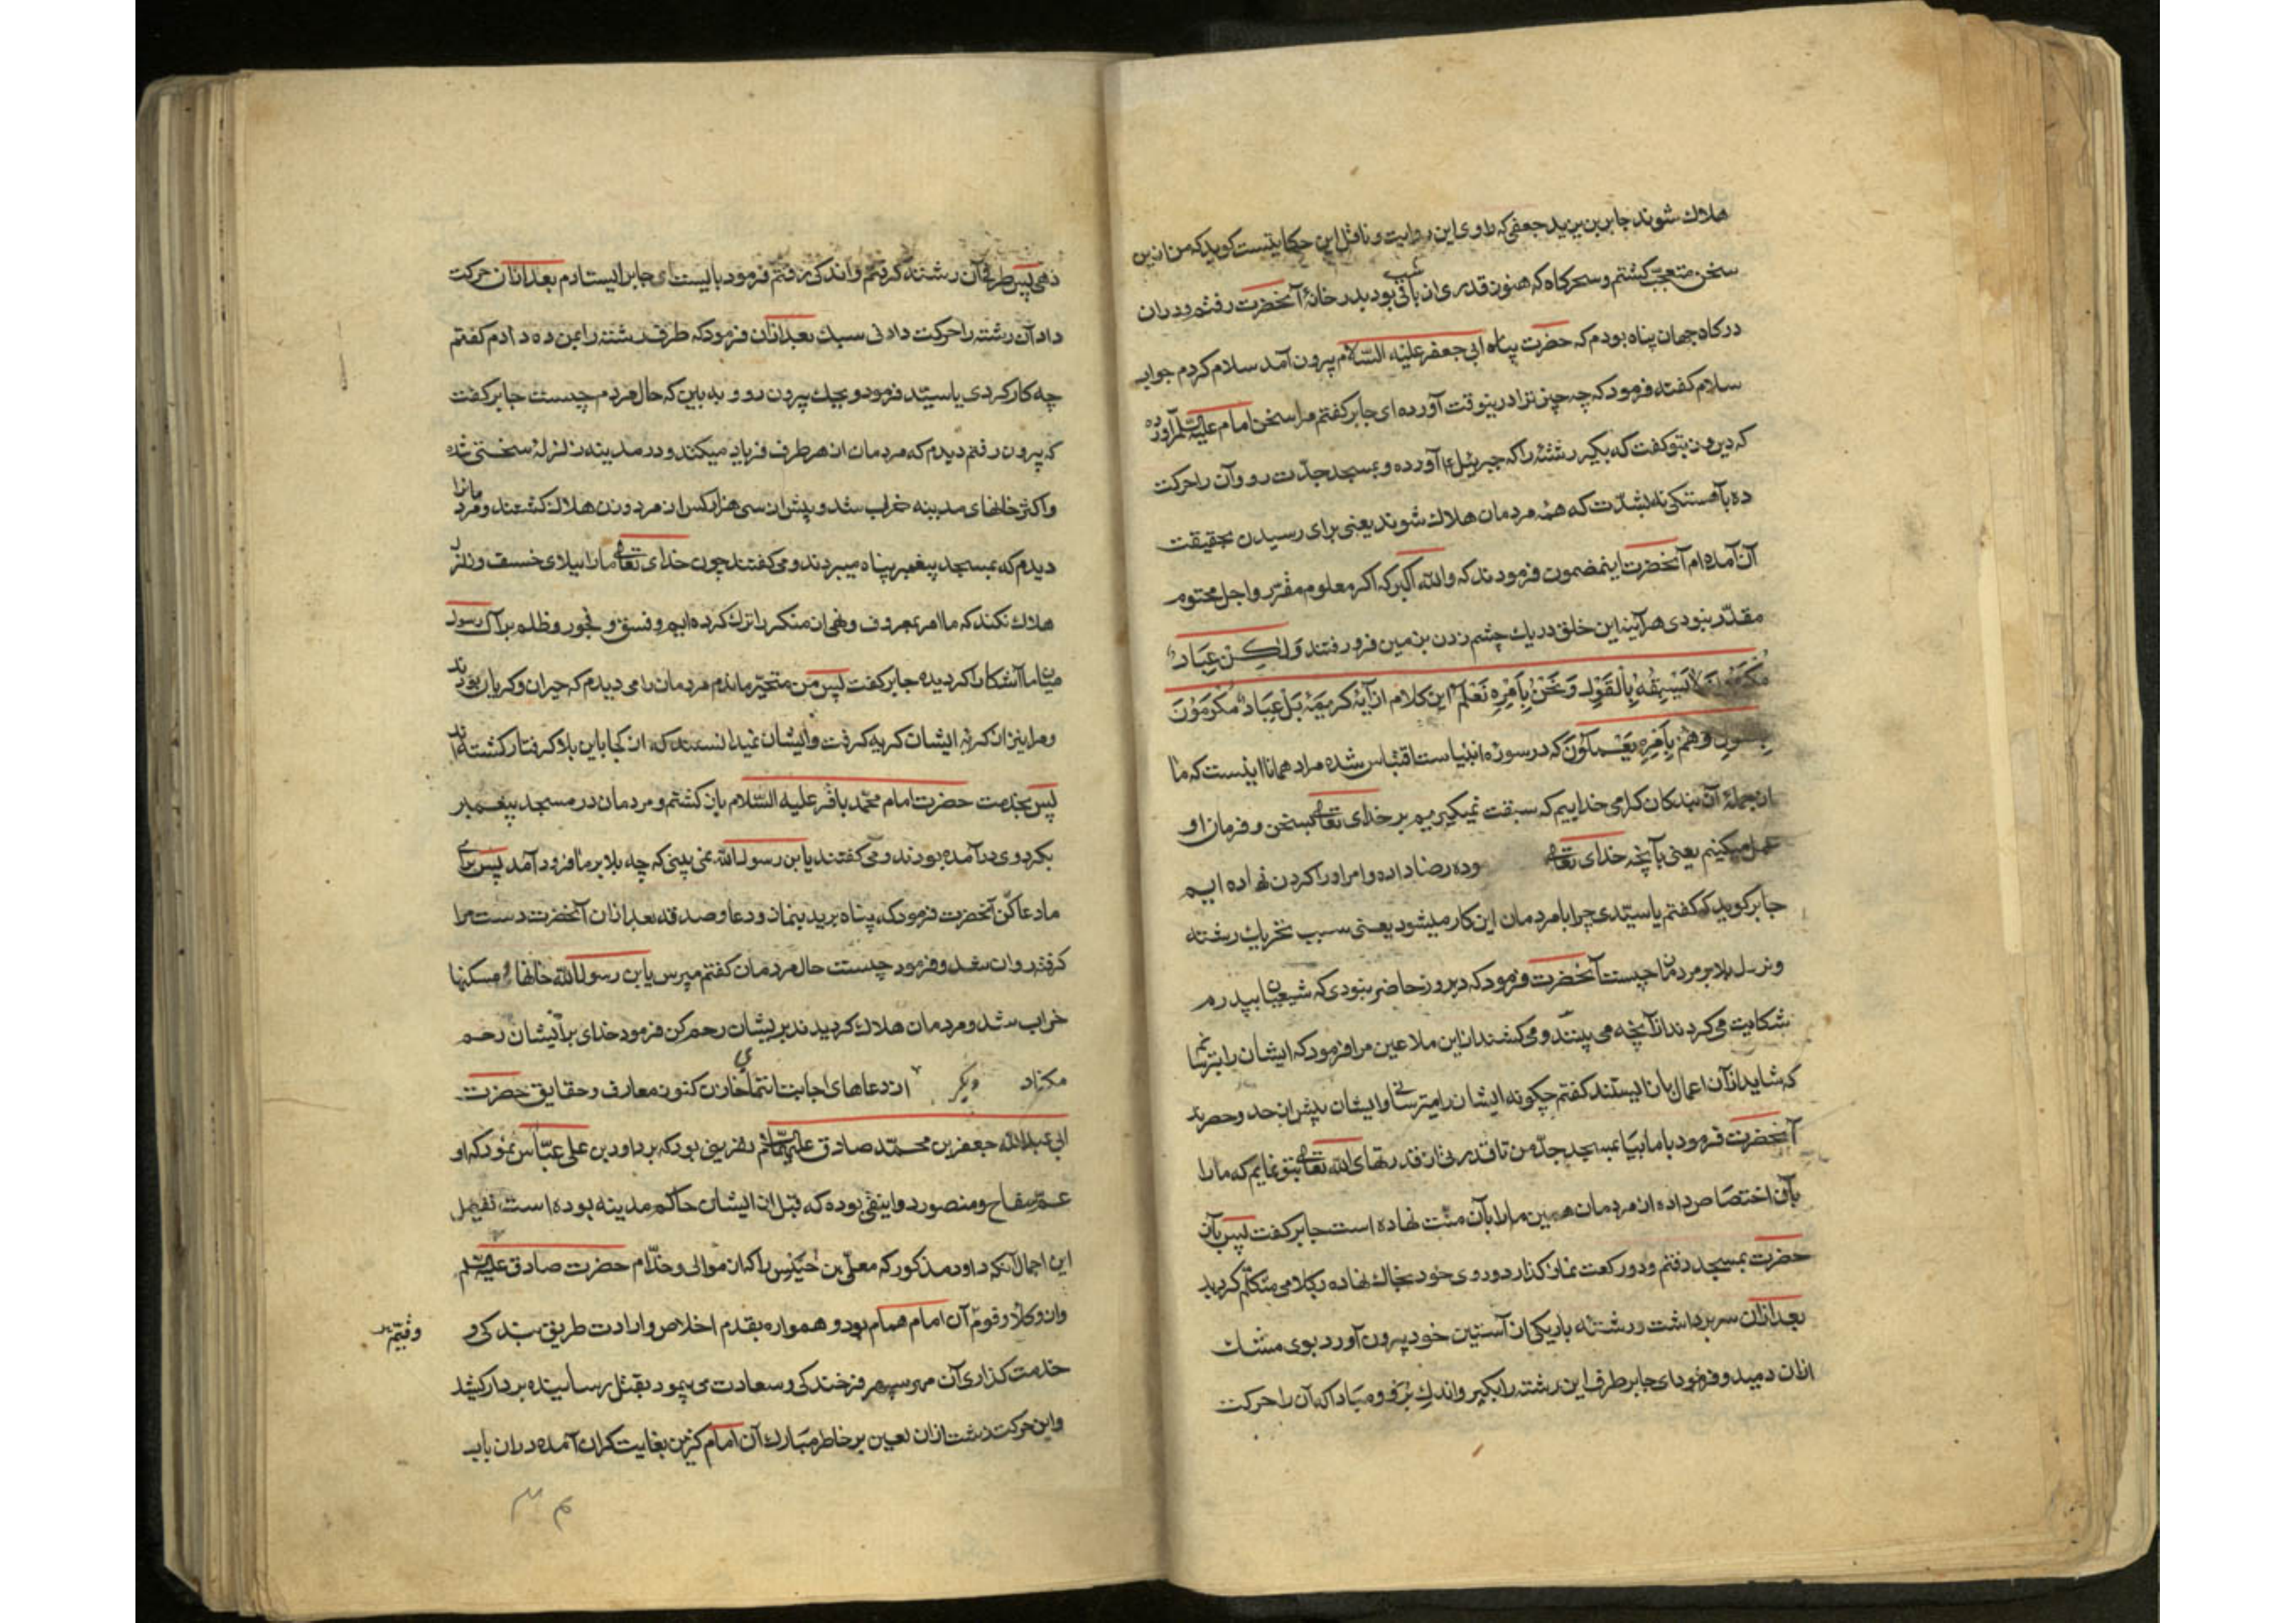 هلاک شوند جابر بن یزید جعفی که راوی این روایت و ناقل این حکایتست کوید که من ازین
سخن متعجب کشتم و سحرکاه که هنوز قدری از شب باقی بود بدر خانهٔ آنحضرت رفتم و در آن
درکاه جهان پناه بودم که حضرت پناه ابی جعفر علیه السّلام بیرون آمد سلام کردم جواب
سلام کفته فرمود که چه چیز ترا درینوقت آورده ای جابر کفتم مرا سخن امام علیه السلم آورده
که دیروز بتو کفت که بکیر رشته را که جبرئیل ع آورده و بمسجد جدّت رو و آن را حرکت
ده بآهستکی نه بشدّت که همه مردمان هلاک شوند یعنی برای رسیدن بحقیقت
آن آمده ام آنحضرت اینمضمون فرمودند که والله اکبر که اکر معلوم مقرّر و اجل محتوم
مقدّر نبودی هرآینه این خلق در یک چشم زدن بزمین فرو رفتند وَلٰکِن عِبَادٌ
مُکرَمُونَ لَا نَسبِقُهُ بِالقَولِ وَ نَحنُ بِاَمرِهِ نَعلَمُ این کلام از آیهٔ کریمهٔ بَل عِبَادٌ مُکرَمُونَ
وَهُم بِاَمرِهِ یَعمَلُونَ که در سوره انبیاست اقتباس شده مراد همانا اینست که ما
از جملهٔ آن بندکان کرامی خداییم که سبقت نمیکیریم بر خدای تعالی بسخن و فرمان او
عمل میکنیم یعنی بآنچه خدای تعالی وده رضا داده و امر او را کردن نهاده ایم
جابر کوید که کفتم یا سیّدی چرا با مردمان این کار میشود یعنی سبب تحریک رشته
و نزول بلا بر مردمان چیست آنحضرت فرمود که دیروز حاضر نبودی که شیعیان بپدرم
شکایت می کردند از آنچه می بینند و می کشند از این ملاعین مرا فرمود که ایشان را بترسانم
که شاید از آن اعمال باز ایستند کفتم چکونه ایشان را میترسانی و ایشان بیش از حد و حصرند
آنحضرت فرمود با ما بیا بمسجد جدّ من تا قدری از قدرتهای الله تعالی بتو نمایم که ما را
بآن اختصاص داده از مردمان همین ما را بآن منّت نهاده است جابر کفت پس بآن
حضرت بمسجد رفتم و دو رکعت نماز کذارد و روی خود بخاک نهاده بکلامی متکلّم کردید
بعد از آن سر برداشت و رشته باریکی از آستین خود بیرون آورد بوی مشک
از آن دمید و فرمود ای جابر طرف این رشته را بکیر و اندک برو و مبادا که آن را حرکت
دهی پس طرف آن رشته کرفتم و اندکی رفتم فرمود بایست ای جابر ایستادم بعد از آن حرکت
داد آن رشته را حرکت دادنی سبک بعد از آن فرمود که طرف رشته را بمن ده دادم کفتم
چه کار کردی یا سیّدی فرمود ویحک بیرون رو و به بین که حال مردم چیست جابر کفت
که بیرون رفتم دیدم که مردمان از هر طرف فریاد میکنند و در مدینه زلزلهٔ سختی شده
و اکثر خانهای مدینه خراب شد و بیش از سی هزار کس از مرد و زن هلاک کشتند و مردمانرا
دیدم که بمسجد پیغمبر پناه میبردند و می کفتند چون خدای تعالی ما را ببلای خسف و زلزله
هلاک نکند که ما امر بمعروف و نهی از منکر را ترک کرده ایم و فسق و فجور و ظلم بر آل رسول
میان ما آشکارا کردیده جابر کفت پس من متحیّر ماندم مردمان را می دیدم که حیران و کریان بودند
و مرا نیز از کریه ایشان کریه کرفت و ایشان نمیدانستند که از کجا باین بلا کرفتار کشته اند
پس بخدمت حضرت امام محمّد باقر علیه السّلام باز کشتم و مردمان در مسجد پیغمبر
بکرد وی درآمده بودند و می کفتند یا بن رسول الله نمی بینی که چه بلا بر ما فرود آمد پس برای
ما دعا کن آنحضرت فرمود که پناه برید بنماز و دعا و صدقه بعد از آن آنحضرت دست مرا
کرفته روان شد و فرمود چیست حال مردمان کفتم مپرس یا بن رسول الله خانها و مسکنها
خراب شد و مردمان هلاک کردیدند بر ایشان رحم کن فرمود خدای بر ایشان رحم
مکناد دیکر از دعاهای اجابت انتمای خازن کنوز معارف و حقایق حضرت
ابی عبدالله جعفر بن محمّد صادق علیهما السّلم نفرینی بود که بر داود بن علی عبّاس نمود که او
عمّ سفاح و منصور دوانیقی بوده که قبل از ایشان حاکم مدینه بوده است تفصیل
این اجمال آنکه داود مذکور که معلّی بن خُنَیس را که از موالی و خدّام حضرت صادق علیه السلم
و از وکلا و قوم آن امام همام بود و همواره بقدم اخلاص و ارادت طریق بندکی و
خدمت کذاری آن مهر سپهر فرخندکی و سعادت می پیمود بقتل رسانیده بر دار کشید
و این حرکت زشت از آن لعین بر خاطر مبارک آن امام کزین بغایت کران آمده در آن باب